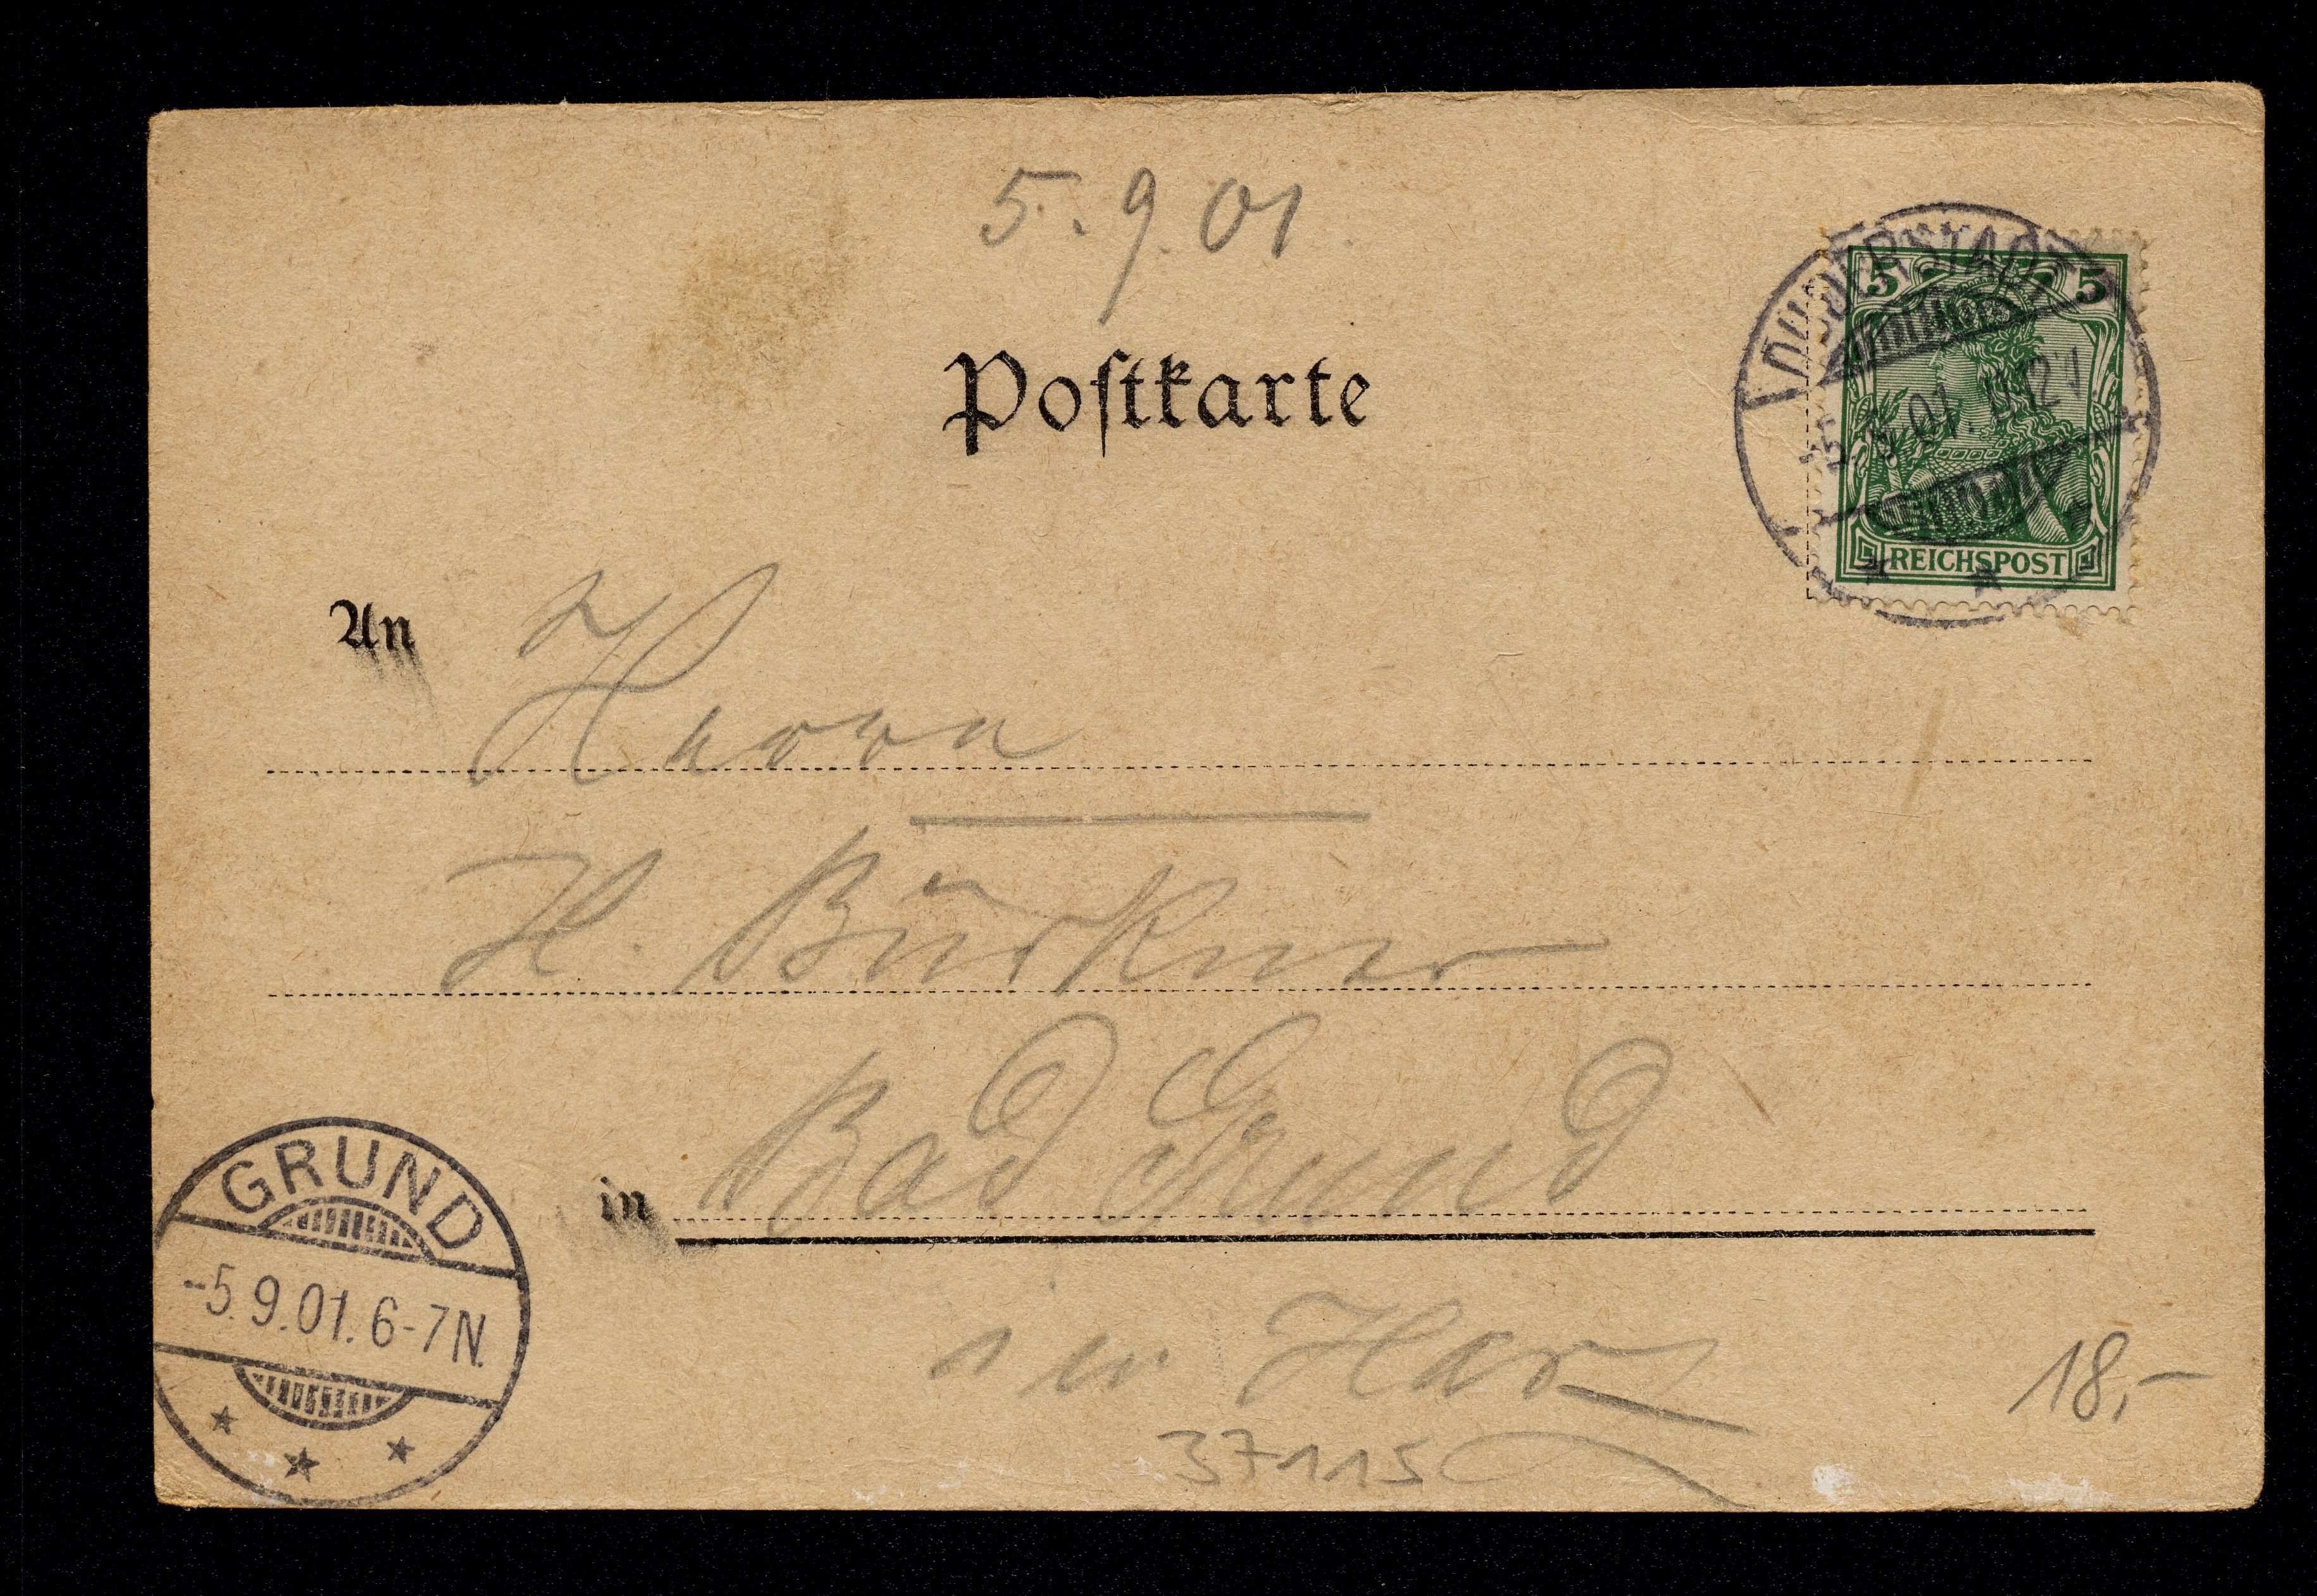 5.9.01.
Postkarte
DUDERSTADT
5 5
5.9.01. 11-12V
REICHSPOST
An
Herrn
H. Bürkner
in Bad Grund
GRUND
-5.9.01.6-7N.
im Harz
18,-
37115